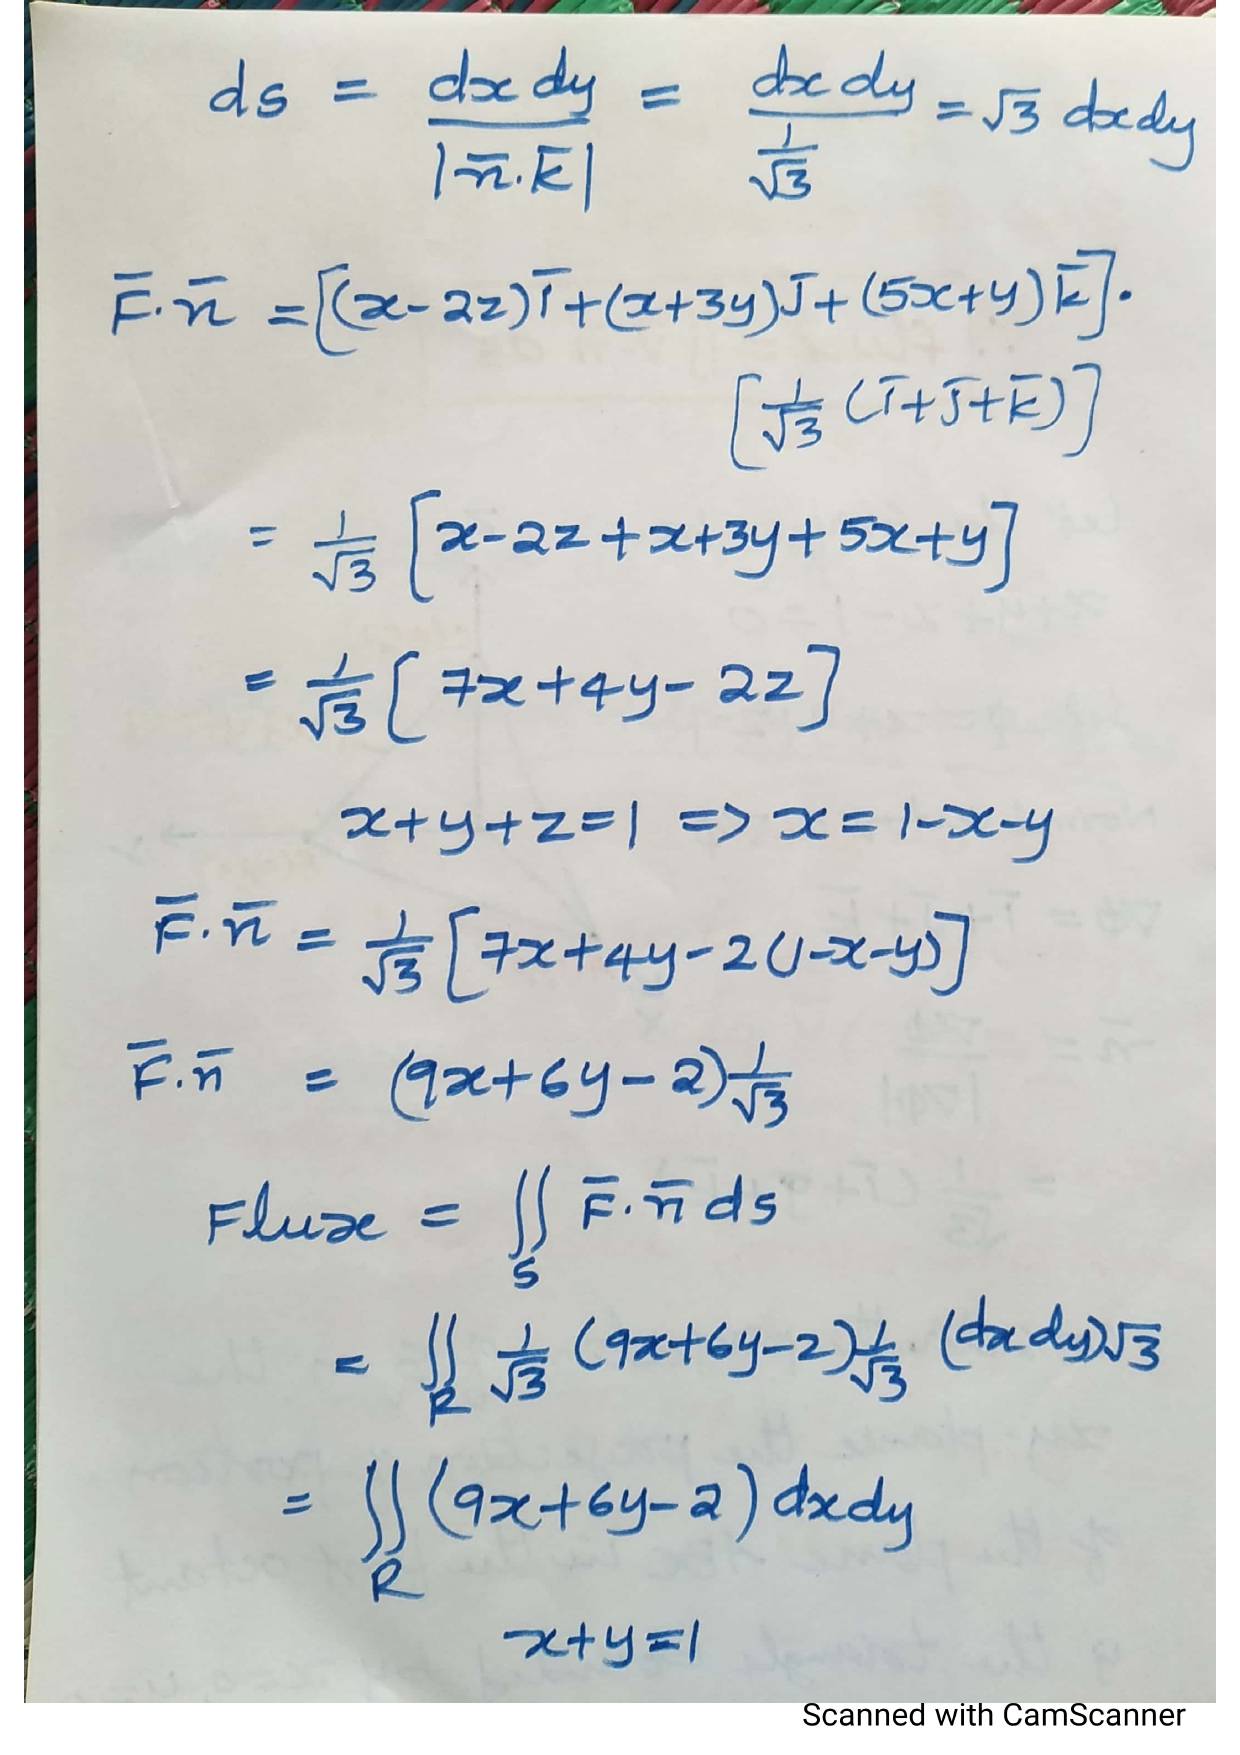 ds = dx dy / |n̄.k̄| = dx dy / (1/√3) = √3 dxdy
F̄.n̄ = [(x-2z)ī+(x+3y)j̄+(5x+y)k̄].
[1/√3 (ī+j̄+k̄)]
= 1/√3 [x-2z+x+3y+5x+y]
= 1/√3 [7x+4y-2z]
x+y+z=1 => x=1-x-y
F̄.n̄ = 1/√3 [7x+4y-2(1-x-y)]
F̄.n̄ = (9x+6y-2) 1/√3
Flux = ∬_S F̄.n̄ ds
= ∬_R 1/√3 (9x+6y-2) 1/√3 (dx dy)√3
= ∬_R (9x+6y-2) dxdy
x+y=1
Scanned with CamScanner